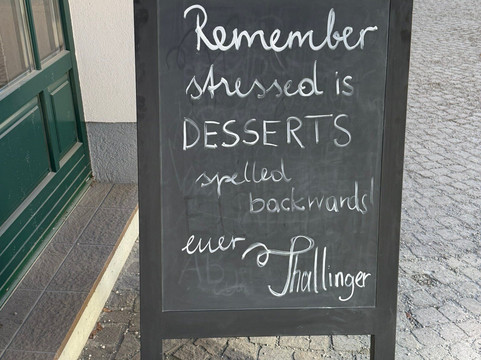 Remember
stressed is
DESSERTS
spelled
backwards!
euer Thallinger